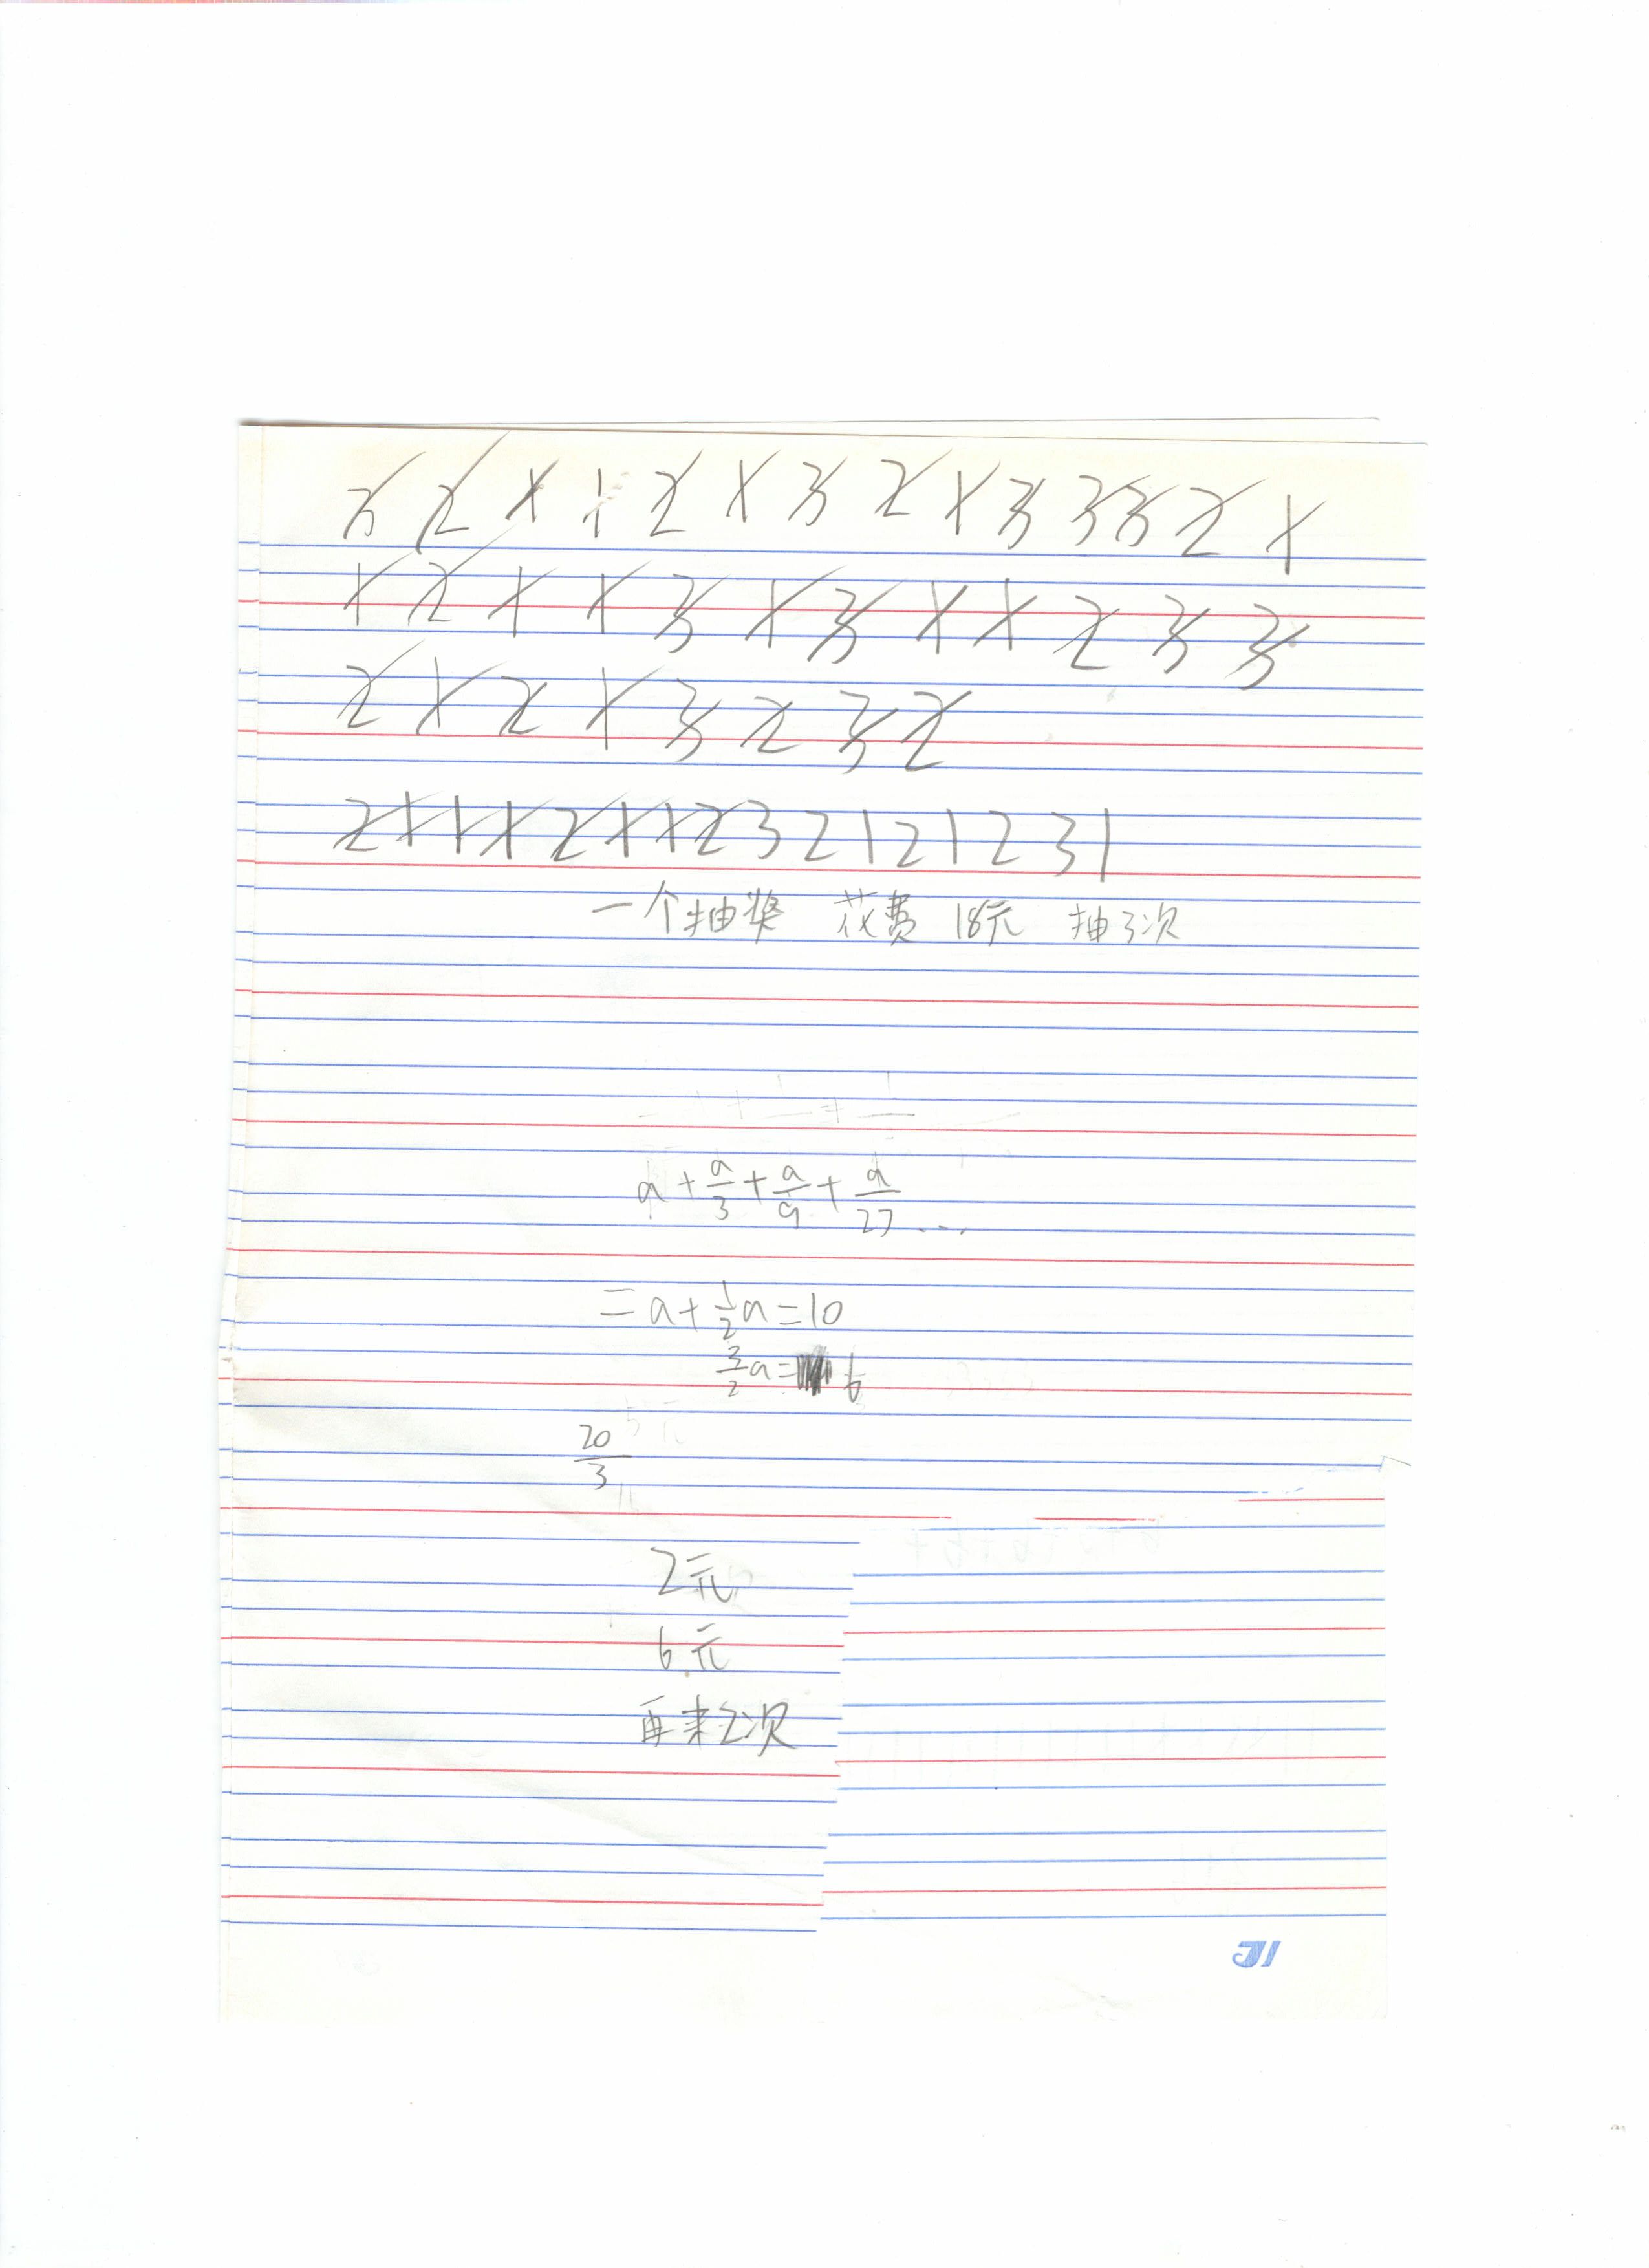 3 2 1 1 2 1 3 2 1 3 3 3 2 1
1 2 1 1 3 1 3 1 1 2 3 3
2 1 2 1 3 2 3 2
2 1 1 1 2 1 1 2 3 2 1 2 1 2 3 1
一个抽奖 花费 18元 抽3次
a + a/3 + a/9 + a/27 ...
= a + 1/2 a = 10
3/2 a = 6
20/3
2元
6元
再来2次